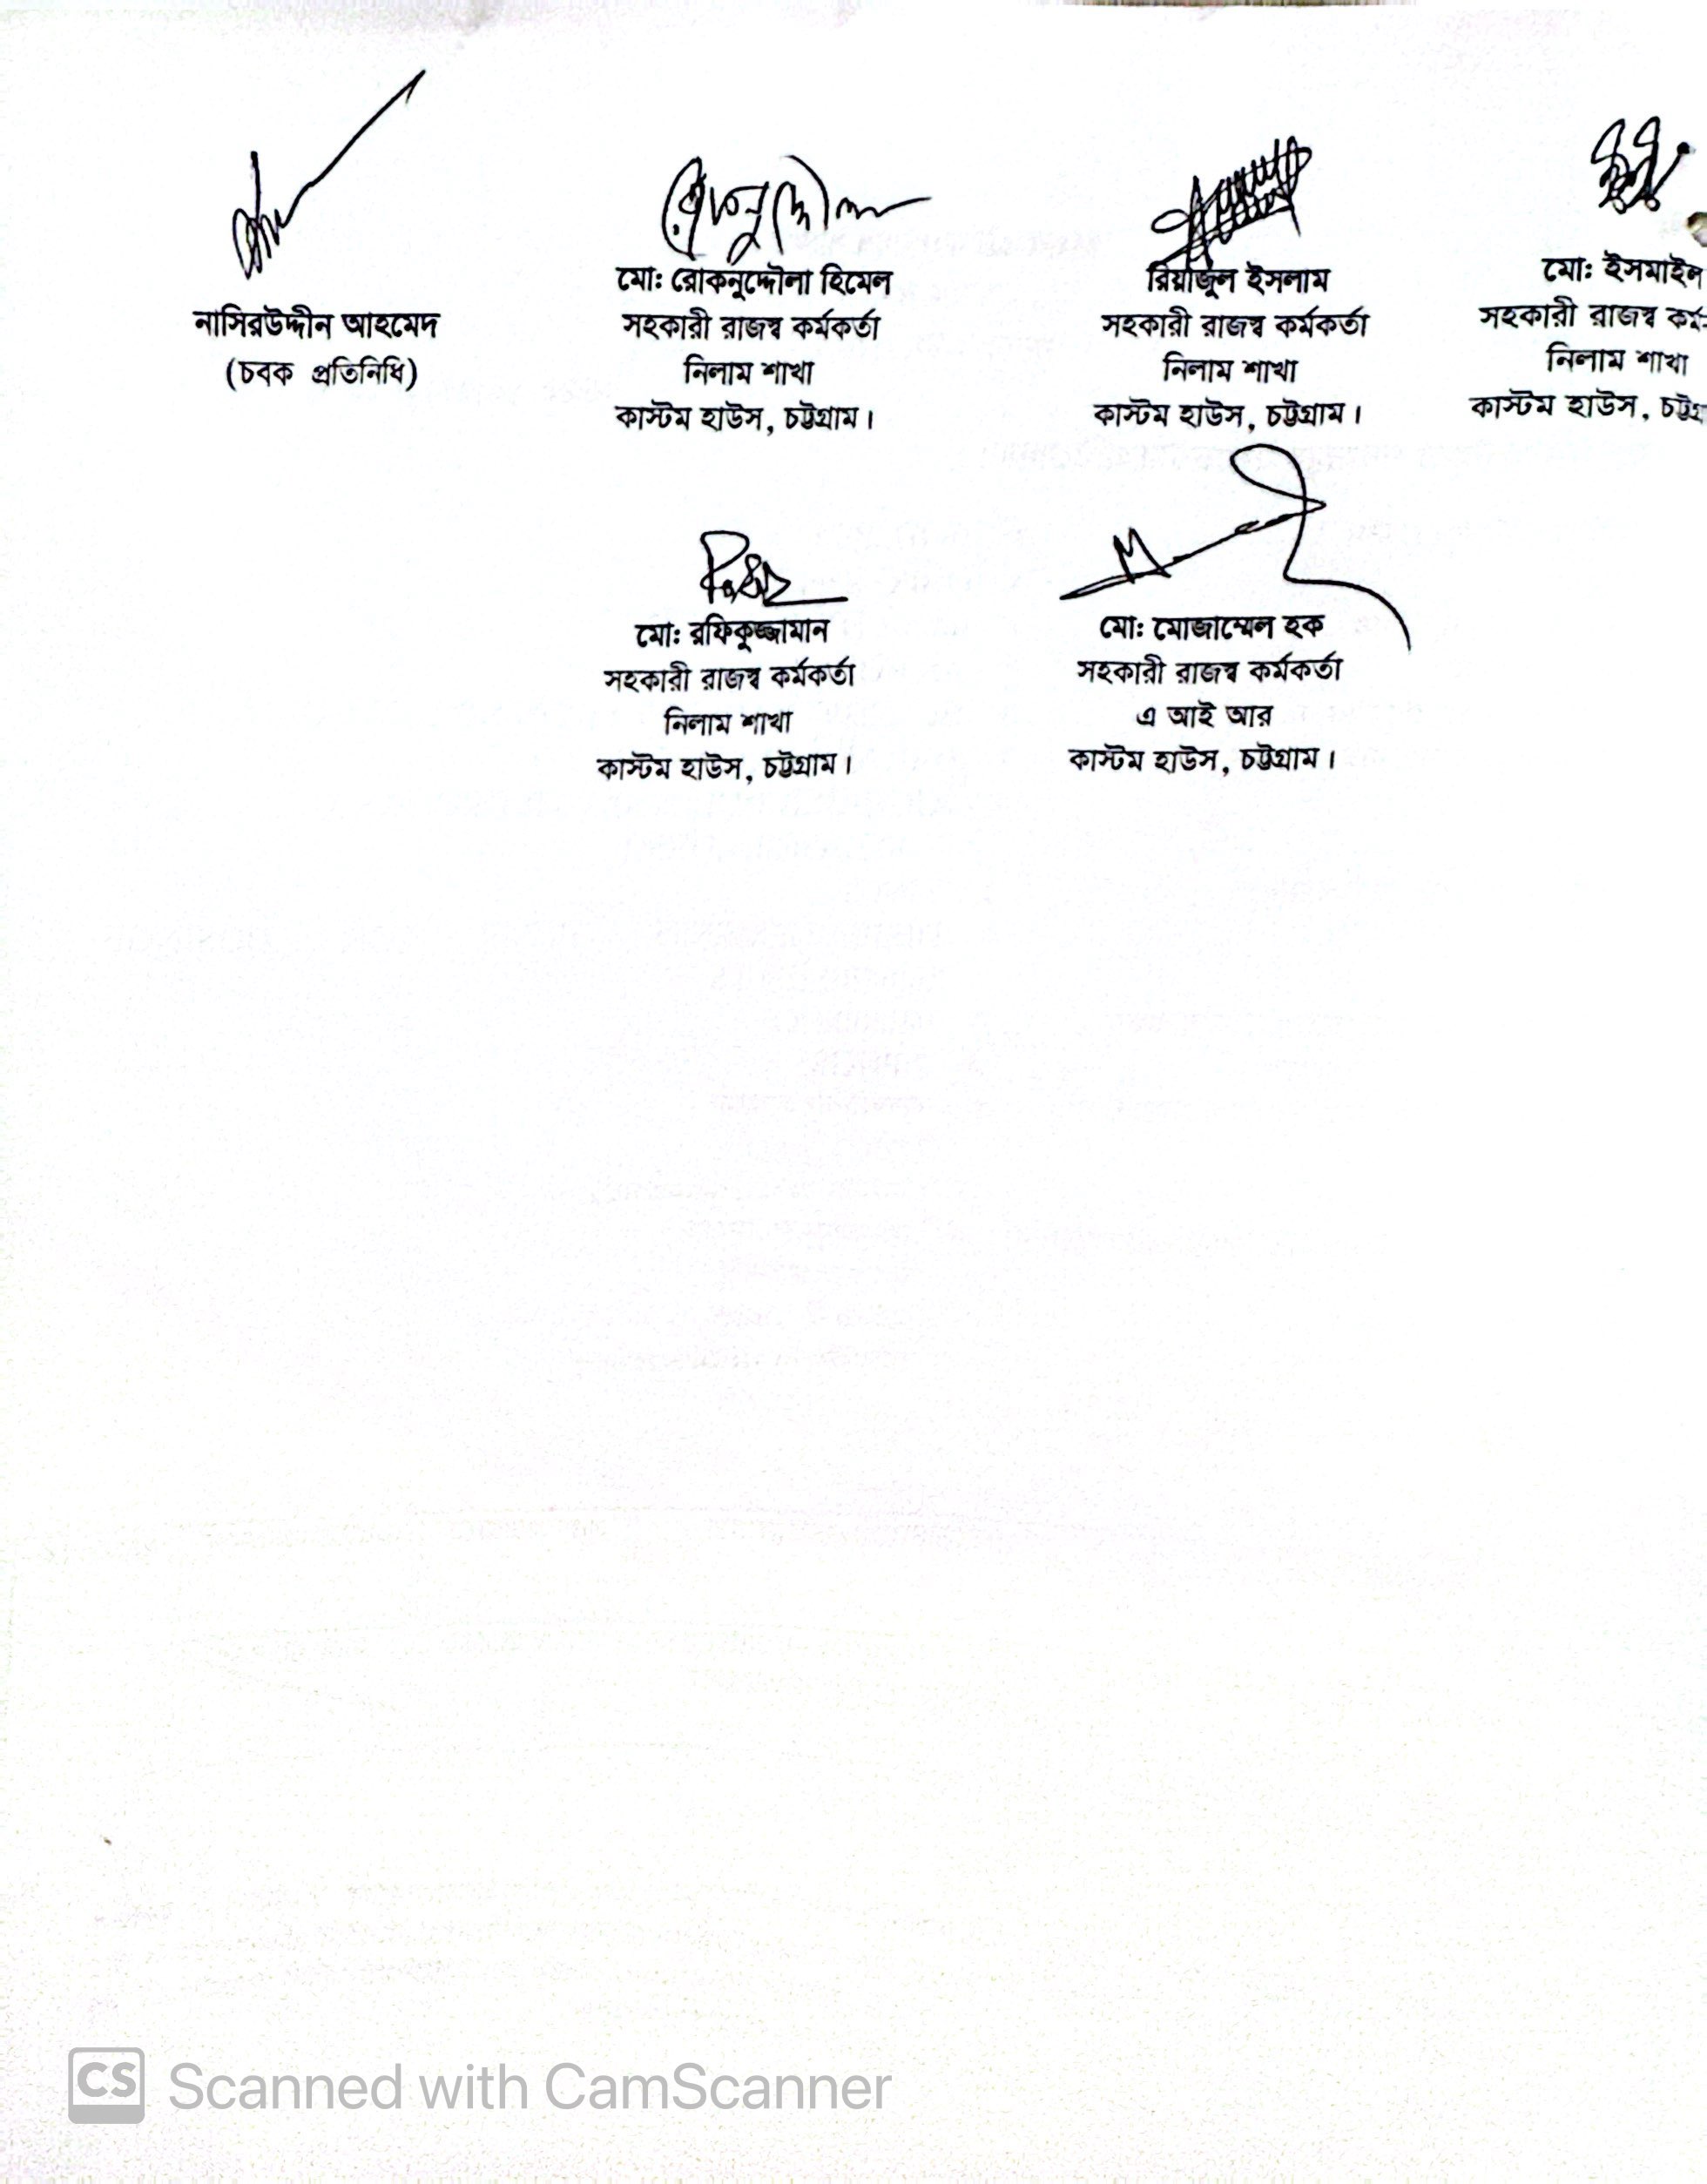 নাসিরউদ্দীন আহমেদ
(চবক প্রতিনিধি)
মো: রোকনুদ্দৌলা হিমেল
সহকারী রাজস্ব কর্মকর্তা
নিলাম শাখা
কাস্টম হাউস, চট্টগ্রাম।
রিয়াজুল ইসলাম
সহকারী রাজস্ব কর্মকর্তা
নিলাম শাখা
কাস্টম হাউস, চট্টগ্রাম।
মো: ইসমাইল
সহকারী রাজস্ব
নিলাম শাখা
কাস্টম হাউস,
মো: রফিকুজ্জামান
সহকারী রাজস্ব কর্মকর্তা
নিলাম শাখা
কাস্টম হাউস, চট্টগ্রাম।
মো: মোজাম্মেল হক
সহকারী রাজস্ব কর্মকর্তা
এ আই আর
কাস্টম হাউস, চট্টগ্রাম।
CS Scanned with CamScanner